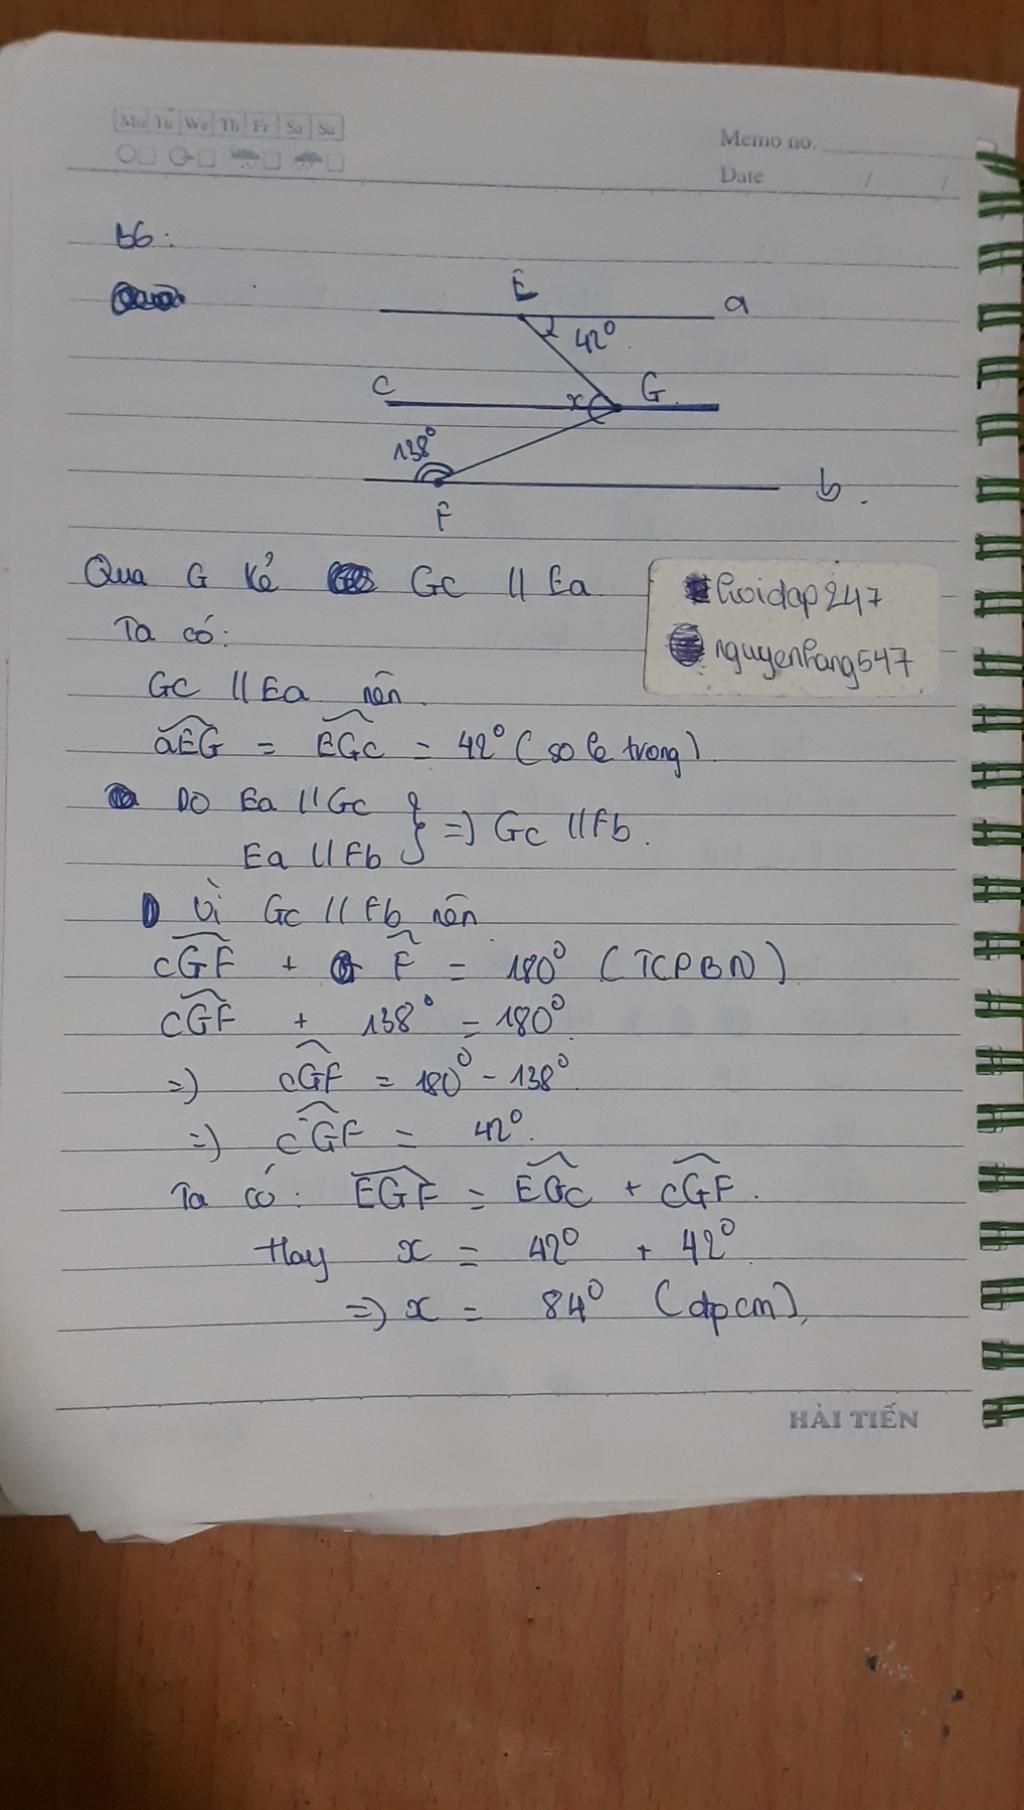 Mo Tu We Th Fr Sa Su
Memo no.
Date / /
b6:
E
a
42°
C
x
G
138°
F
b
Qua G kẻ Gc // Ea
hoidap247
nguyenhang547
Ta có:
Gc // Ea nên
aEG = EGc = 42° (so le trong)
Do Ea // Gc
Ea // Fb } => Gc // Fb.
Vì Gc // Fb nên
cGF + F = 180° (TCPBN)
cGF + 138° = 180°
=> cGF = 180° - 138°
=> cGF = 42°.
Ta có: EGF = EGc + cGF.
Hay x = 42° + 42°
=> x = 84° (đpcm)
HẢI TIẾN